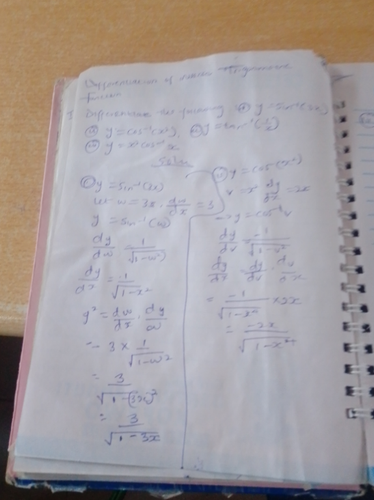 Differentiation of inverse Trigonometric
Differentiate the following y = sin⁻¹(3x)
y = cos⁻¹(x²), y = tan⁻¹
y = x² cos⁻¹ x
Soln
y = sin⁻¹(3x)
let w = 3x, dw/dx = 3
y = sin⁻¹(w)
dy/dw = 1/√(1-w²)
dy/dx = 1/√(1-x²)
y' = dw/dx · dy/dw
= 3 × 1/√(1-w²)
= 3/√(1-(3x)²
= 3/√(1-3x
y = cos⁻¹(x²)
v = x² dv/dx = 2x
y = cos⁻¹ v
dy/dv = -1/√(1-v²)
dy/dx = dy/dv · dv/dx
= -1/√(1-x²) × 2x
= -2x/√(1-x²)